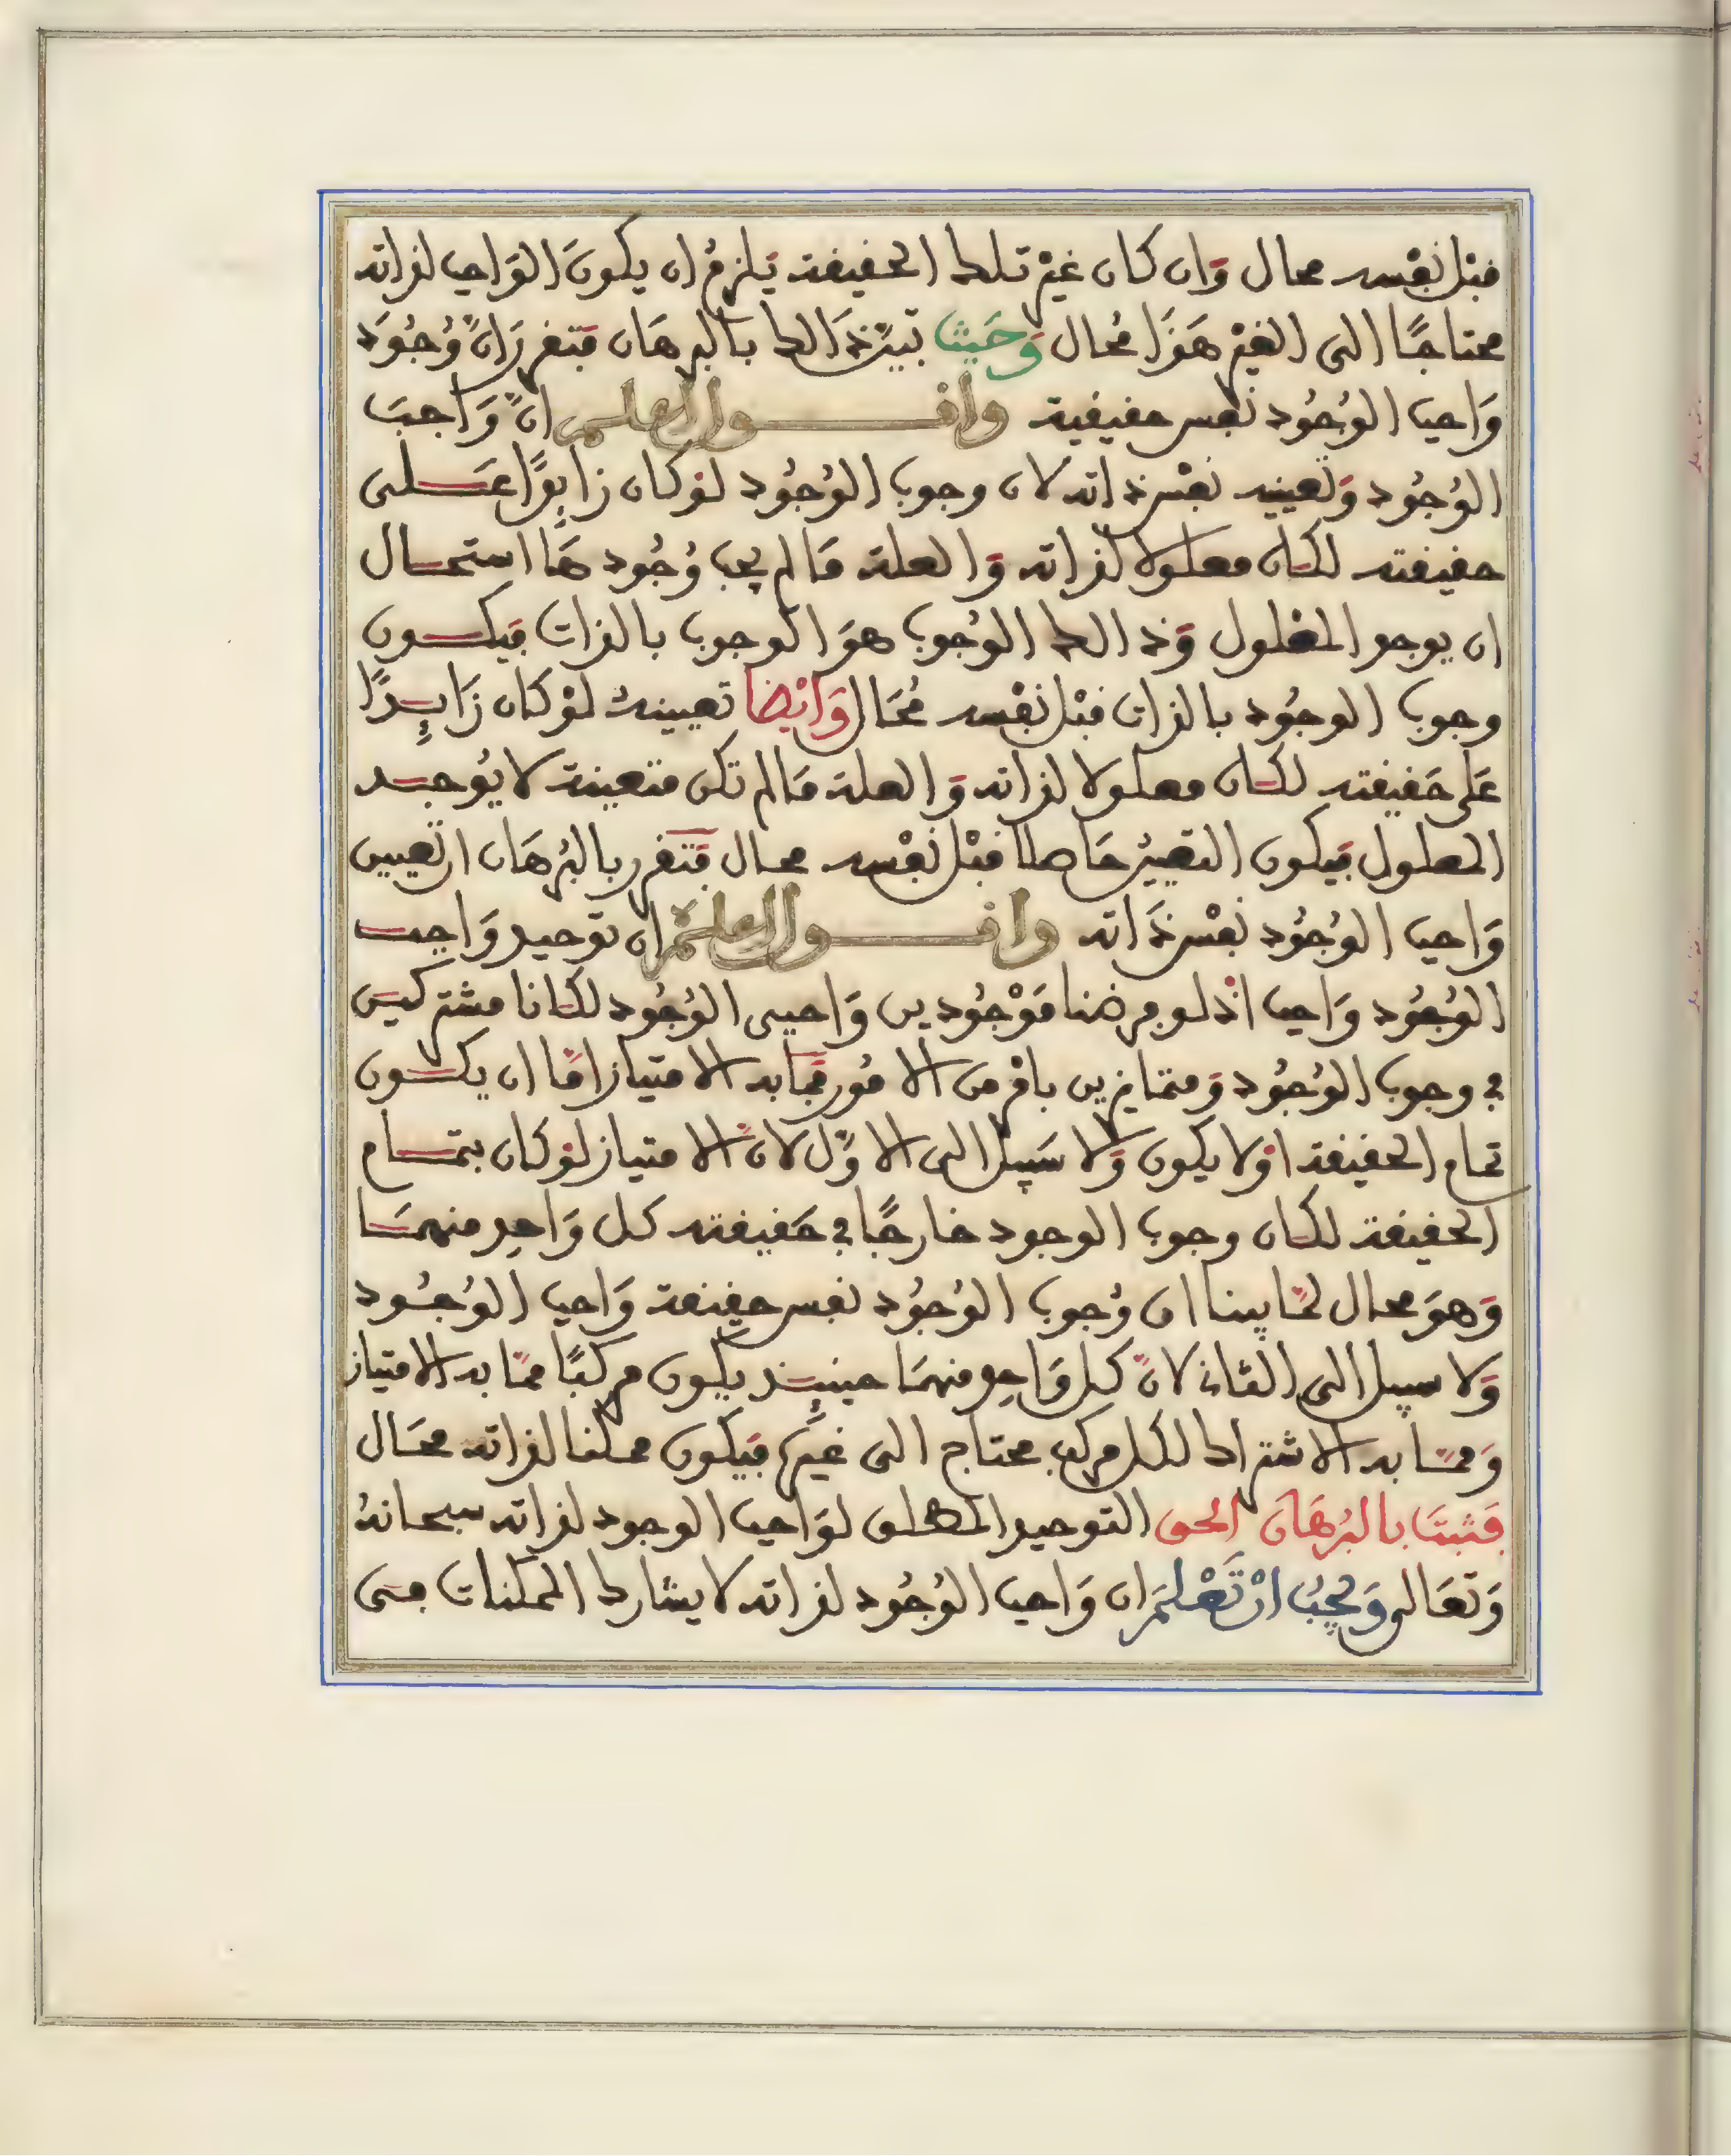 قبل نفسه محال وَان كان غيْر تلك الحقيقة يَلزمُ ان يكونَ الوَاجب لذاته
محتاجًا الى الغيْر هَذَا مُحال وَحَيث تبيّن ذَالك بالبرهَان فتقرر انّ وُجُوَد
وَاجب الوُجُود نفس حقيقية واقــول العلم انّ وَاجبَ
الوُجُود وَتعيينه نفْس ذاته لان وجوب الوُجُود لوْ كان زايدًا عَــلى
حقيقته لكــان معلولا لذاته وَالعلة مَا لم يجب وُجُودهَا استحــال
ان يوجد المعلول وَذالك الوُجوب هوَ الوجوب بالذات فيكــون
وجوب الوجوُد بالذات قبْل نفْسه مُحَال وَايْضا تعيينهُ لوْ كان زَايــدًا
عَلى حَقيقته لكــان معلولا لذاته وَالعلة مَا لم تكن متعينة لا يُوجــد
المعلول فيكون التعيّن حَاصلا قبْل نفْسه محال فَتقرر بالبُرهَان ان تعيين
وَاجب الوُجُود نفْس ذَاته واقــول العلم ان توحيد وَاجب
الوُجُود وَاجب اذْ لو فرضنا مَوْجُودين وَاجبى الوُجُود لكانا مشتركيَن
في وجوب الوُجُود وَمتمايزين بامْر من الامُور فمَا به الامتياز امَّا ان يكــون
تمام الحقيقة اوْ لا يكون وَلا سَبيل الى الاوَّل لانّ الامتياز لوْ كان بتمــام
الحقيقة لكــان وجوب الوجود خارجًا في حَقيقته كل وَاحد منهمَــا
وَهوَ محال لمّا بينا ان وُجوب الوُجُود نفس حقيقة وَاجب الوُجُــود
وَلا سبيل الى الثاني لانّ كل وَاحد منهمَا حينئــذ يكون مركبًا ممّا به الامتياز
وَممّا به الاشتراك لكل مركب محتاج الى غيَره فيَكون ممكنا لذاته محَال
فَثبتَ بالبُرهَان الحق التوحيد المطلق لوَاجب الوجود لذاته سبحانهُ
وَتعَالى وَيجبُ انْ تَعْلمَ ان وَاجب الوُجُود لذاته لا يشارك الممكنات فــى